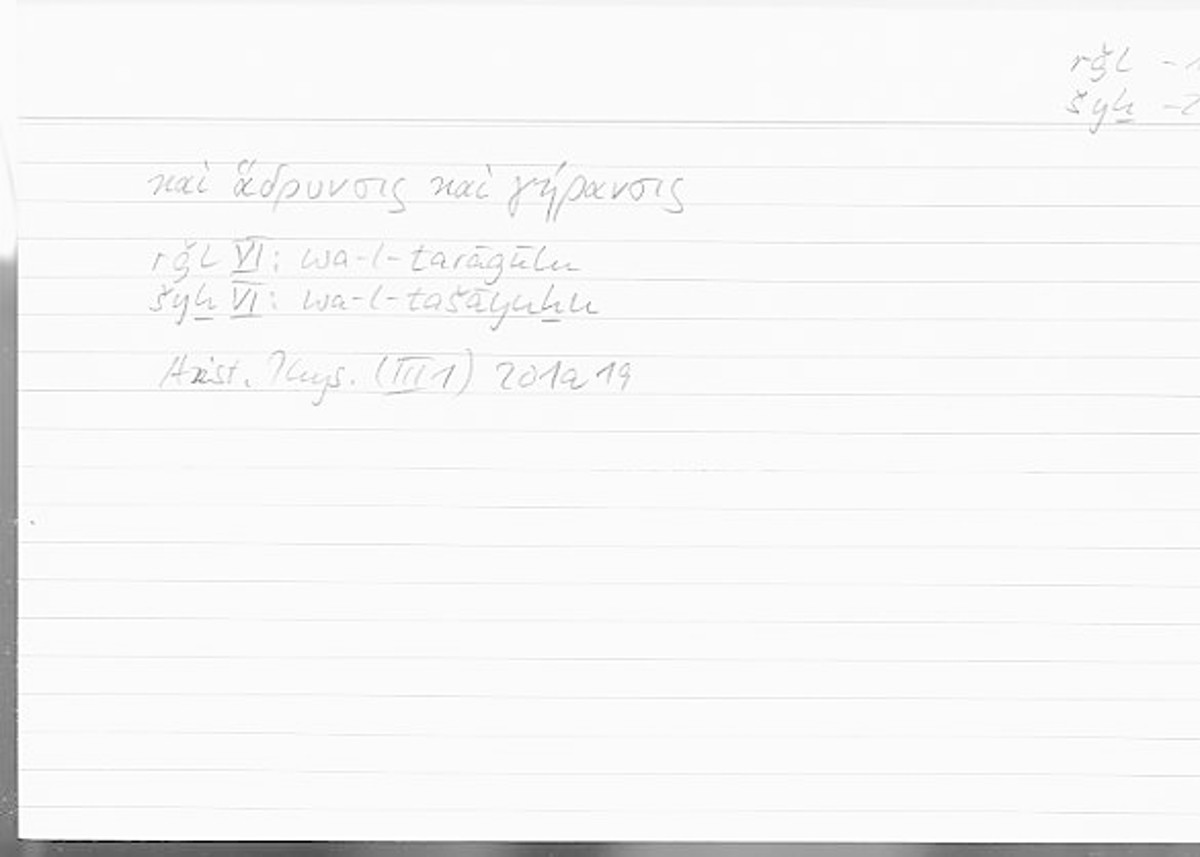 rǧl - 1
šyẖ - 2
καὶ ἅδρυνσις καὶ γήρανσις
rǧl VI: wa-l-tarāǧulu
šyẖ VI: wa-l-tašāyuẖu
Arist. Phys. (III 1) 201a19